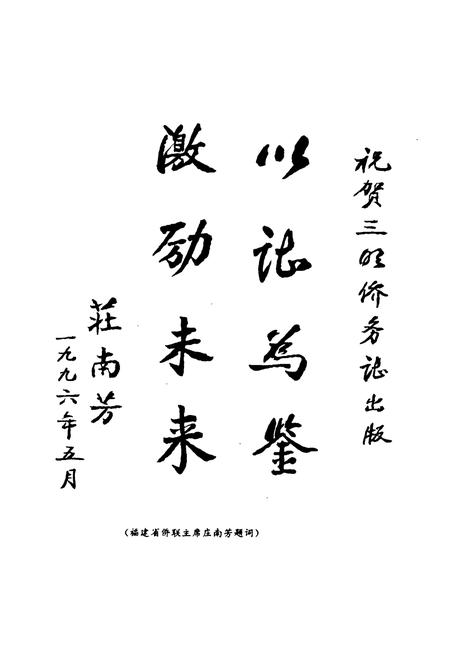 祝贺三明侨务志出版
以志为鉴
激励未来
莊南芳
一九九六年五月
（福建省侨联主席庄南芳题词）